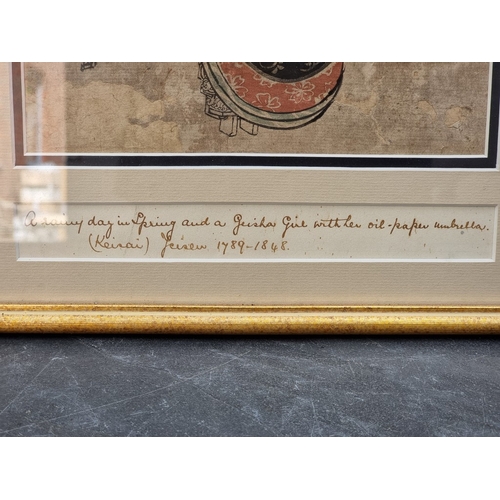 A rainy day in Spring and a Geisha Girl with her oil-paper umbrella.
(Keisai) Yeisen 1789-1848.